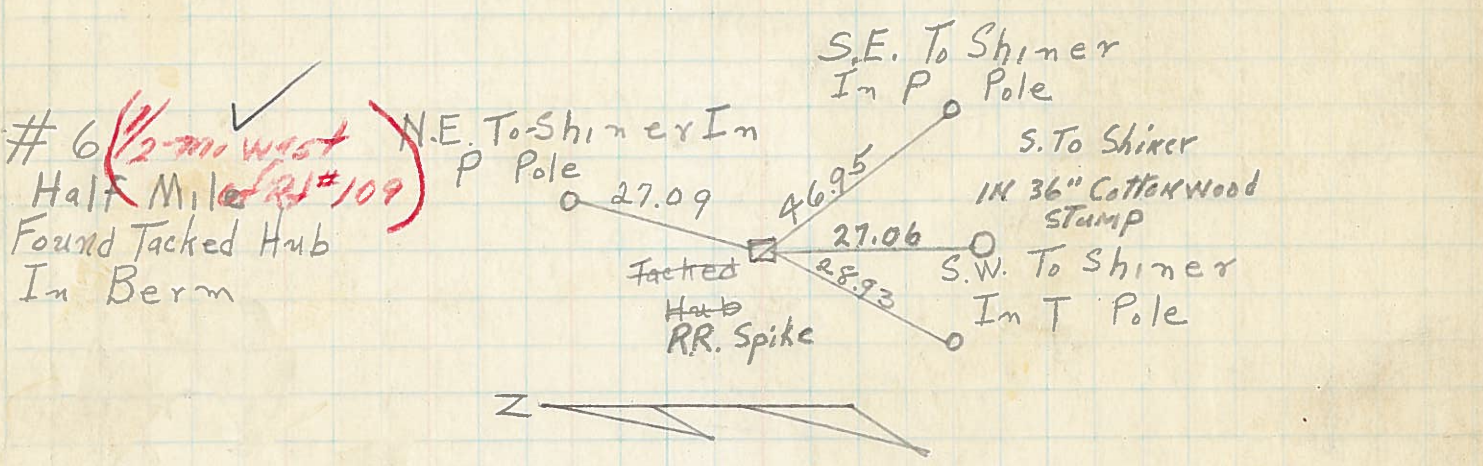 # 6 (1/2-mi west
of Rd #109)
Half Mile
Found Tacked Hub
In Berm
N.E. To Shiner In
P Pole
27.09
S.E. To Shiner
In P Pole
46.95
S. To Shiner
IN 36" CottonWood
STUMP
27.06
S.W. To Shiner
In T Pole
28.93
Tacked
Hub
RR. Spike
Z